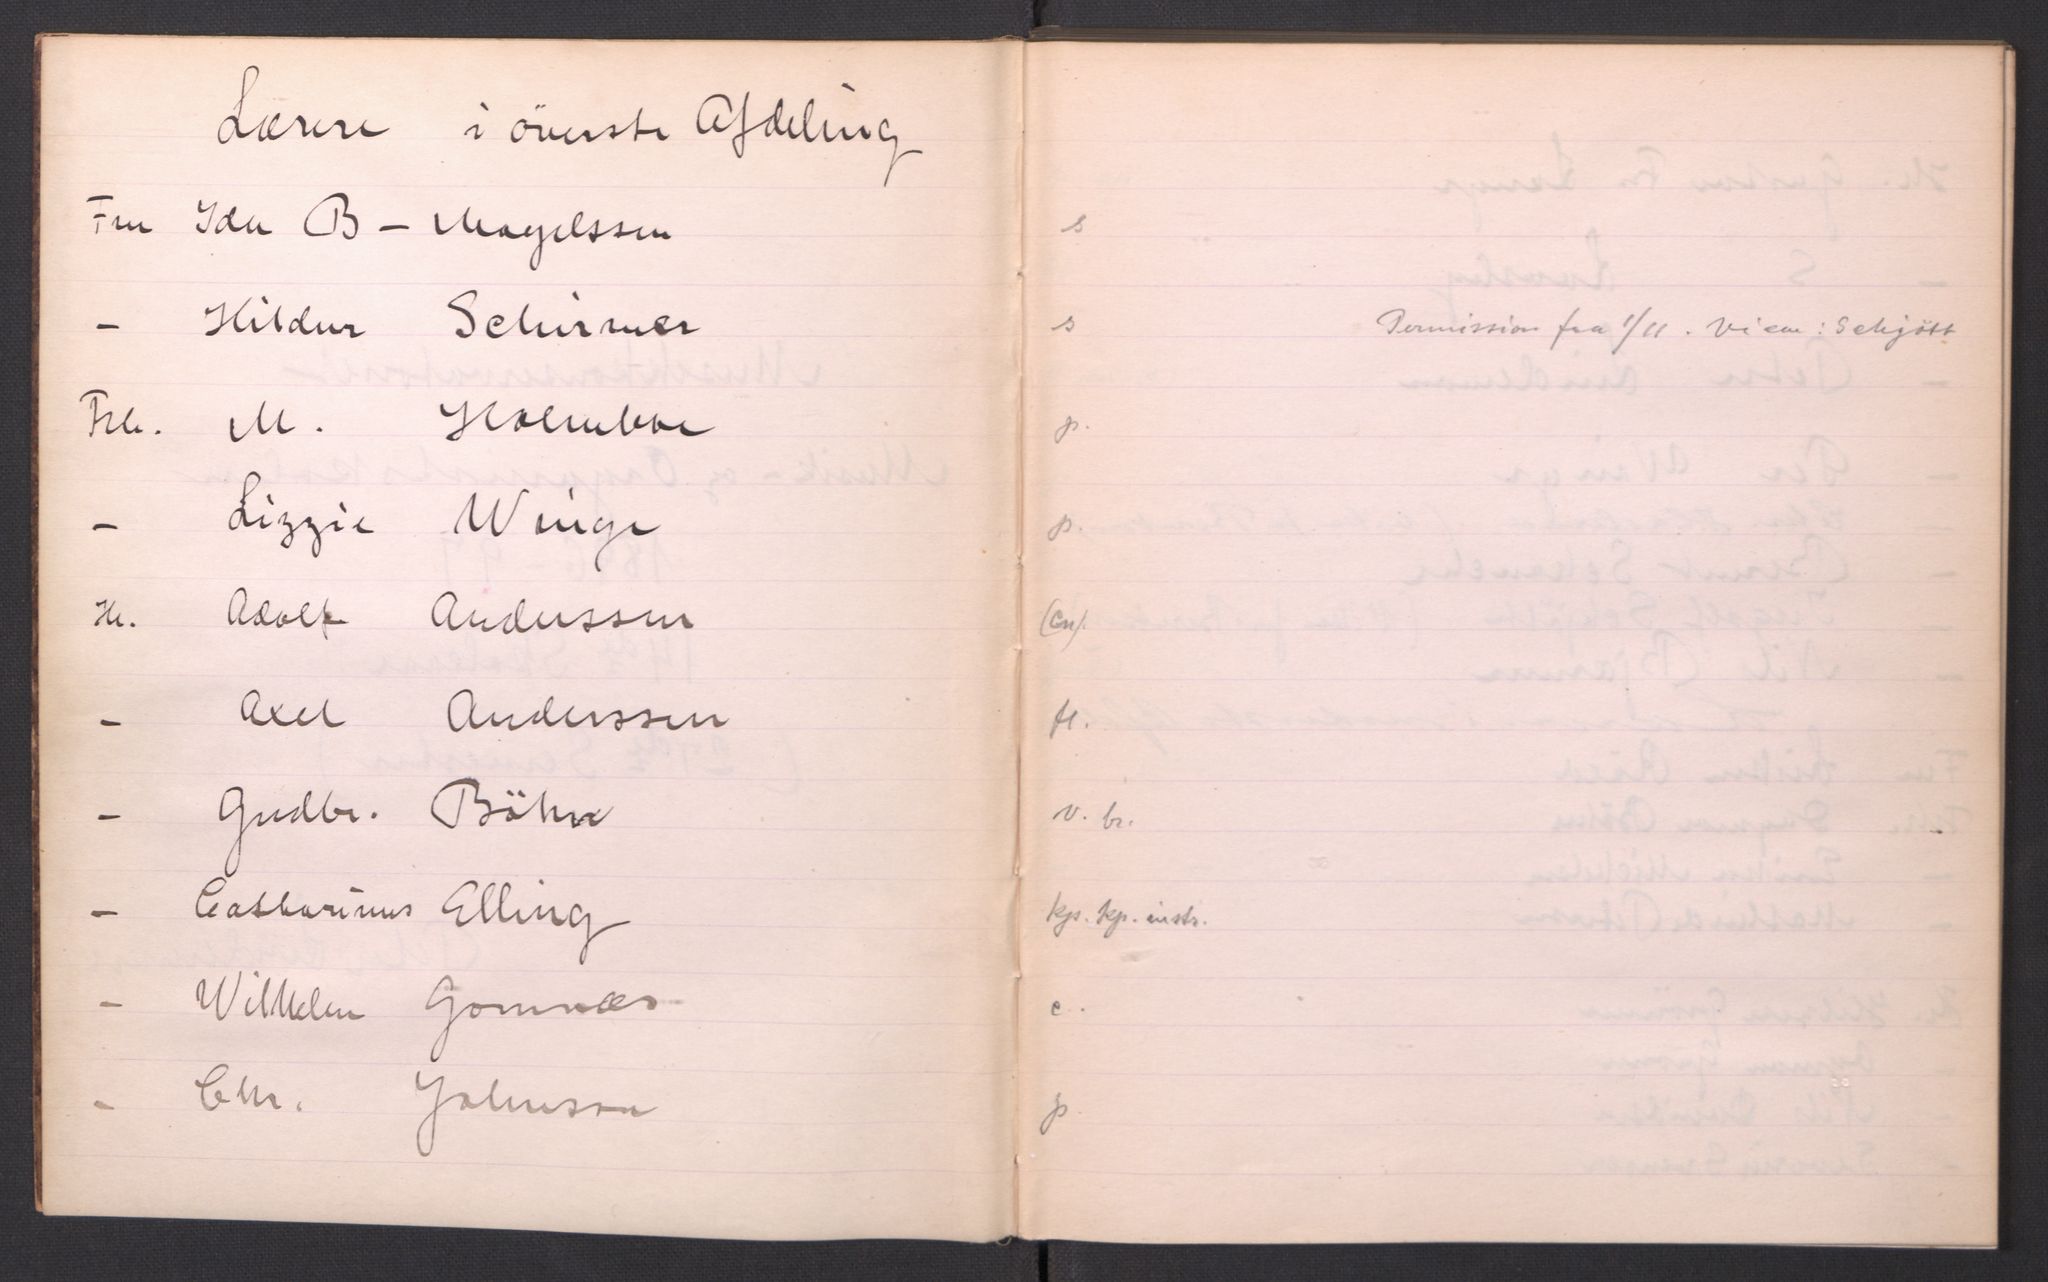 Lærere i överste Afdeling
Fru Ida B – Magelssen s
– Hildur Schirmer s Permission fra 1/11. Vicar: Schjött
Frk. M. Holmboe p.
– Lizzie Winge p.
Hr. Adolf Anderssen (Cn).
– Axel Anderssen fl.
– Gudbr. Böhn v. br.
– Catharinus Elling kps. kp. instr.
– Wilhelm Gomnæs c.
– Chr. Johnson p.